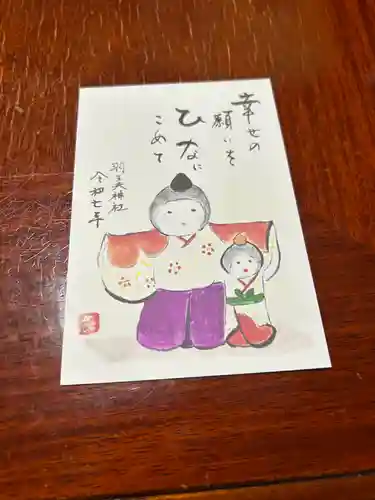 幸せの
願いを
ひなに
こめて
羽美神社
令和七年